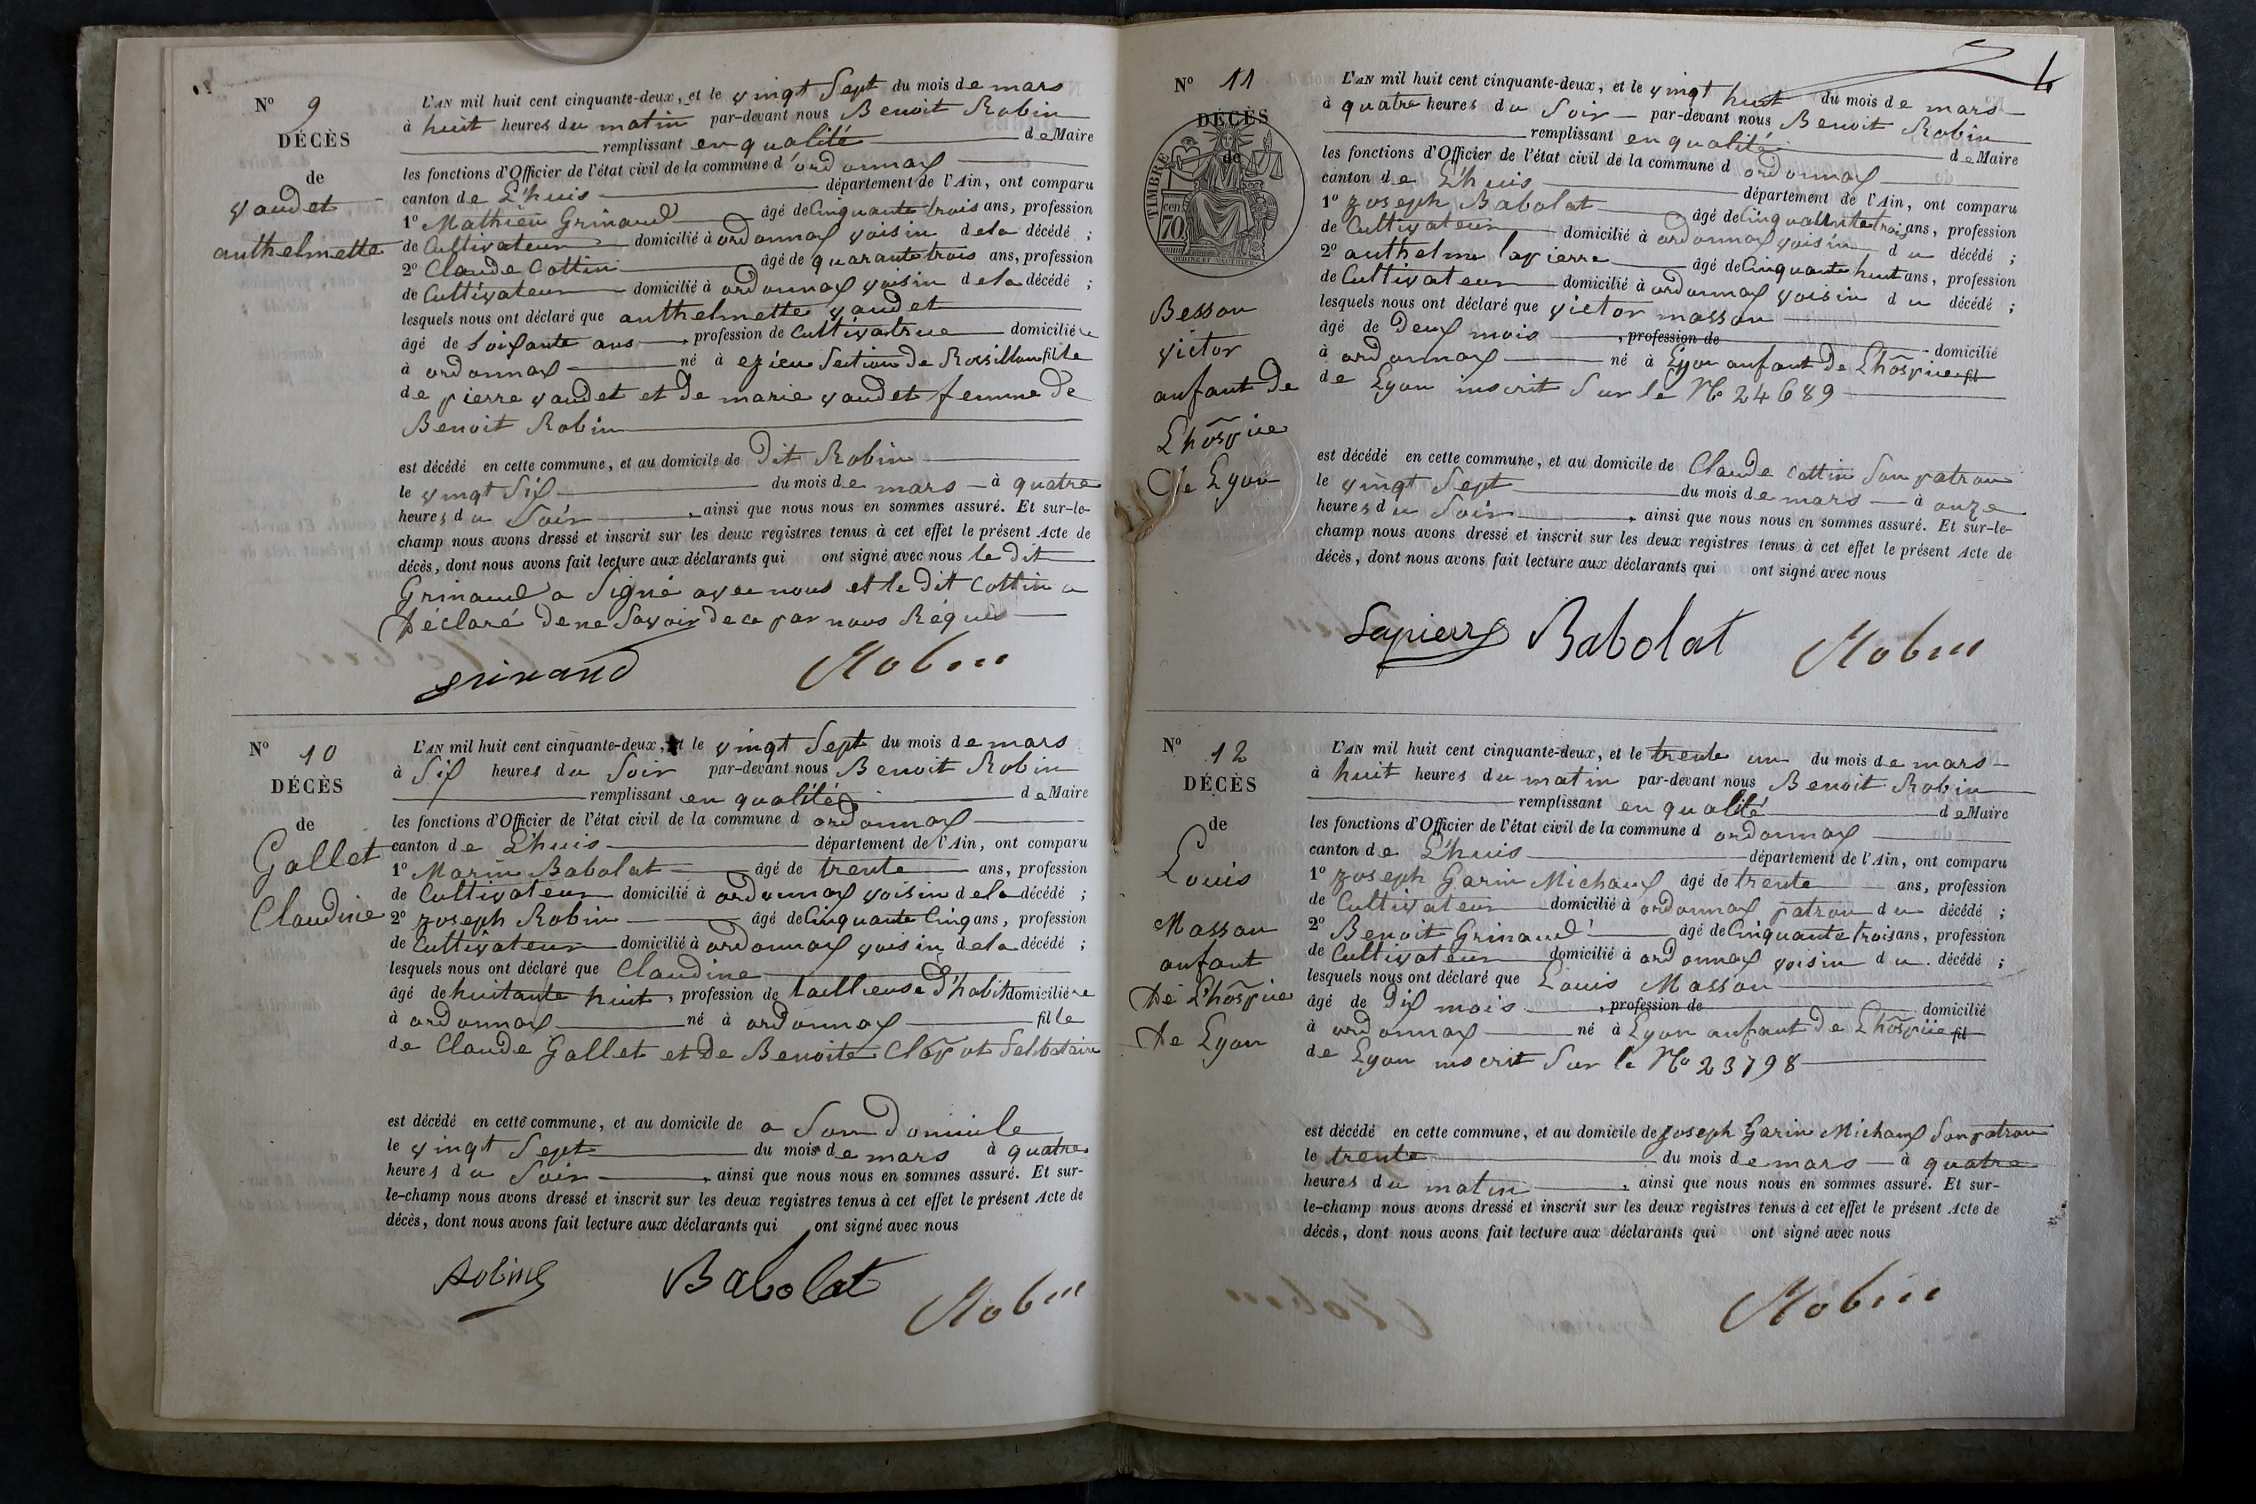 N° 9
DÉCÈS
de
vaudet
anthelmette
L'AN mil huit cent cinquante-deux, et le vingt Sept du mois de mars
à huit heures du matin par-devant nous Benoit Robin
remplissant en qualité de Maire
les fonctions d'Officier de l'état civil de la commune d'ordonnax
canton de L'huis département de l'Ain, ont comparu
1° Mathieu Grinand âgé de Cinquante trois ans, profession
de Cultivateur domicilié à ordonnax voisin de la décédé ;
2° Claude Cottin âgé de quarante trois ans, profession
de Cultivateur domicilié à ordonnax voisin de la décédé ;
lesquels nous ont déclaré que anthelmette vaudet
âgé de Soixante ans profession de Cultivatrice domiciliée
à ordonnax né à ezieu Section de Rossillon fille
de pierre vaudet et de marie vaudet femme de
Benoit Robin
est décédé en cette commune, et au domicile de Dit Robin
le vingt Six du mois de mars à quatre
heures du Soir, ainsi que nous nous en sommes assuré. Et sur-le-
champ nous avons dressé et inscrit sur les deux registres tenus à cet effet le présent Acte de
décès, dont nous avons fait lecture aux déclarants qui ont signé avec nous le dit
Grinand a Signé avec nous et le dit Cottin a
Déclaré de ne Savoir de ce par nous Réquis
grinand Robin
N° 10
DÉCÈS
de
Gallet
Claudine
L'AN mil huit cent cinquante-deux, et le vingt Sept du mois de mars
à Six heures du Soir par-devant nous Benoit Robin
remplissant en qualité de Maire
les fonctions d'Officier de l'état civil de la commune d ordonnax
canton de L'huis département de l'Ain, ont comparu
1° Marin Babolat âgé de trente ans, profession
de Cultivateur domicilié à ordonnax voisin de la décédé ;
2° Joseph Robin âgé de Cinquante Cinq ans, profession
de Cultivateur domicilié à ordonnax voisin de la décédé ;
lesquels nous ont déclaré que Claudine
âgé de huitante huit, profession de tailleuse d'habit domiciliée
à ordonnax né à ordonnax fille
de Claude Gallet et de Benoite Clapot Selibataire
est décédé en cette commune, et au domicile de a Son Domicile
le vingt Sept du mois de mars à quatre
heures du Soir, ainsi que nous nous en sommes assuré. Et sur-
le-champ nous avons dressé et inscrit sur les deux registres tenus à cet effet le présent Acte de
décès, dont nous avons fait lecture aux déclarants qui ont signé avec nous
Robin Babolat Robin
N° 11
DÉCÈS
de
TIMBRE
70
Besson
victor
anfant de
L'hospice
De Lyon
L'AN mil huit cent cinquante-deux, et le vingt huit du mois de mars
à quatre heures du Soir par-devant nous Benoit Robin
remplissant en qualité de Maire
les fonctions d'Officier de l'état civil de la commune d ordonnax
canton de L'huis département de l'Ain, ont comparu
1° Joseph Babolat âgé de Cinquante trois ans, profession
de Cultivateur domicilié à ordonnax voisin du décédé ;
2° anthelme lapierre âgé de Cinquante huit ans, profession
de Cultivateur domicilié à ordonnax voisin du décédé ;
lesquels nous ont déclaré que victor masson
âgé de Deux mois, profession de domicilié
à ordonnax né à Lyon anfant de L'hospice fil
de Lyon inscrit Sur le N° 24689
est décédé en cette commune, et au domicile de Claude Cottin Son patron
le vingt Sept du mois de mars à onze
heures du Soir, ainsi que nous nous en sommes assuré. Et sur-le-
champ nous avons dressé et inscrit sur les deux registres tenus à cet effet le présent Acte de
décès, dont nous avons fait lecture aux déclarants qui ont signé avec nous
Lapierre Babolat Robin
N° 12
DÉCÈS
de
Louis
Masson
anfant
De L'hospice
De Lyon
L'AN mil huit cent cinquante-deux, et le trente un du mois de mars
à huit heures du matin par-devant nous Benoit Robin
remplissant en qualité de Maire
les fonctions d'Officier de l'état civil de la commune d ordonnax
canton de L'huis département de l'Ain, ont comparu
1° Joseph Garin Michaux âgé de trente ans, profession
de Cultivateur domicilié à ordonnax patron du décédé ;
2° Benoit Grinand âgé de Cinquante trois ans, profession
de Cultivateur domicilié à ordonnax voisin du décédé ;
lesquels nous ont déclaré que Louis Masson
âgé de Dix mois, profession de domicilié
à ordonnax né à Lyon anfant de L'hospice fil
de Lyon inscrit Sur le N° 23798
est décédé en cette commune, et au domicile de Joseph Garin Michaux Son patron
le trente du mois de mars à quatre
heures du matin, ainsi que nous nous en sommes assuré. Et sur-
le-champ nous avons dressé et inscrit sur les deux registres tenus à cet effet le présent Acte de
décès, dont nous avons fait lecture aux déclarants qui ont signé avec nous
Robin